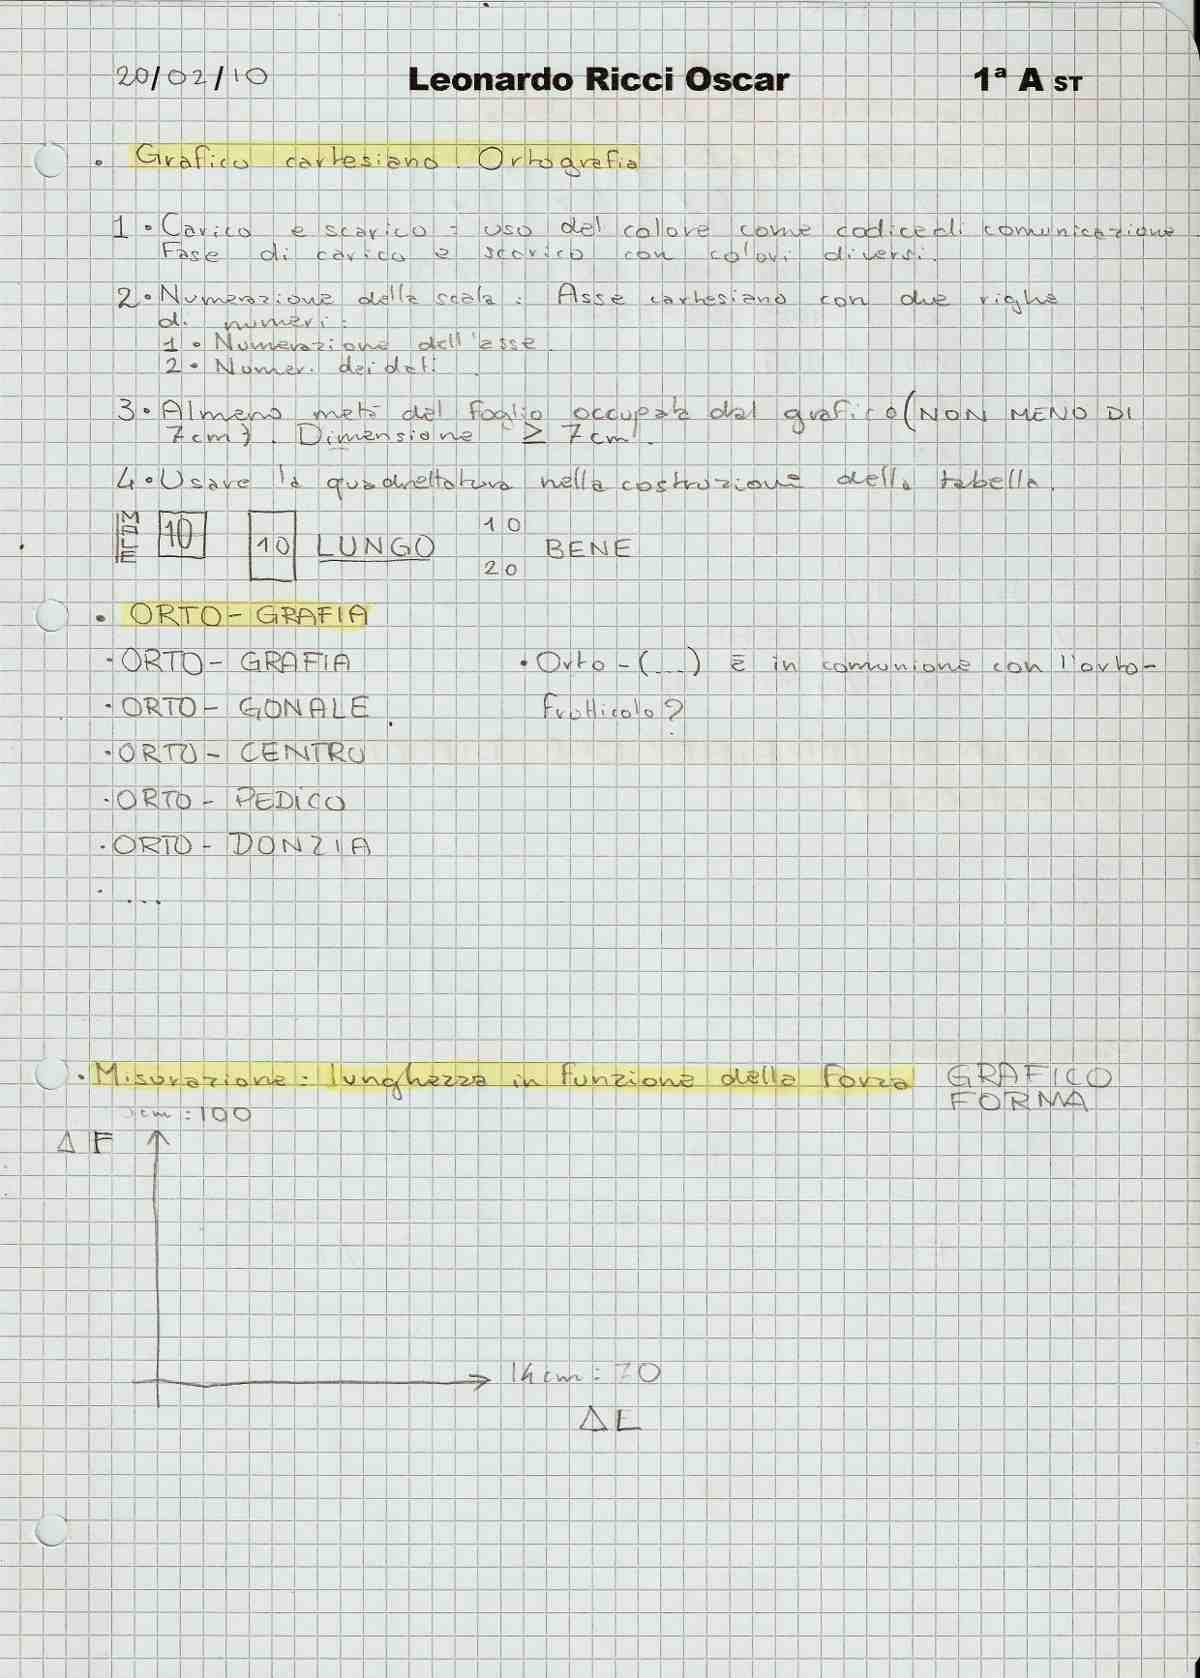 20/02/10 Leonardo Ricci Oscar 1ª A ST
• Grafico cartesiano. Ortografia
1• Carico e scarico = uso del colore come codice di comunicazione
Fase di carico e scarico con colori diversi.
2• Numerazione della scala: Asse cartesiano con due righe
di numeri:
1• Numerazione dell'asse
2• Numer. dei dati
3• Almeno metà del foglio occupata dal grafico (NON MENO DI
7cm). Dimensione ≥ 7cm.
4• Usare la quadrettatura nella costruzione della tabella.
MALE 10 10 LUNGO 10 20 BENE
• ORTO-GRAFIA
• ORTO- GRAFIA • Orto-(...) È in comunione con l'orto-
• ORTO- GONALE frutticolo?
• ORTO- CENTRO
• ORTO- PEDICO
• ORTO- DONZIA
• ...
• Misurazione: lunghezza in funzione della forza GRAFICO
FORMA
cm: 100
Δ F
14 cm: 70
Δ L